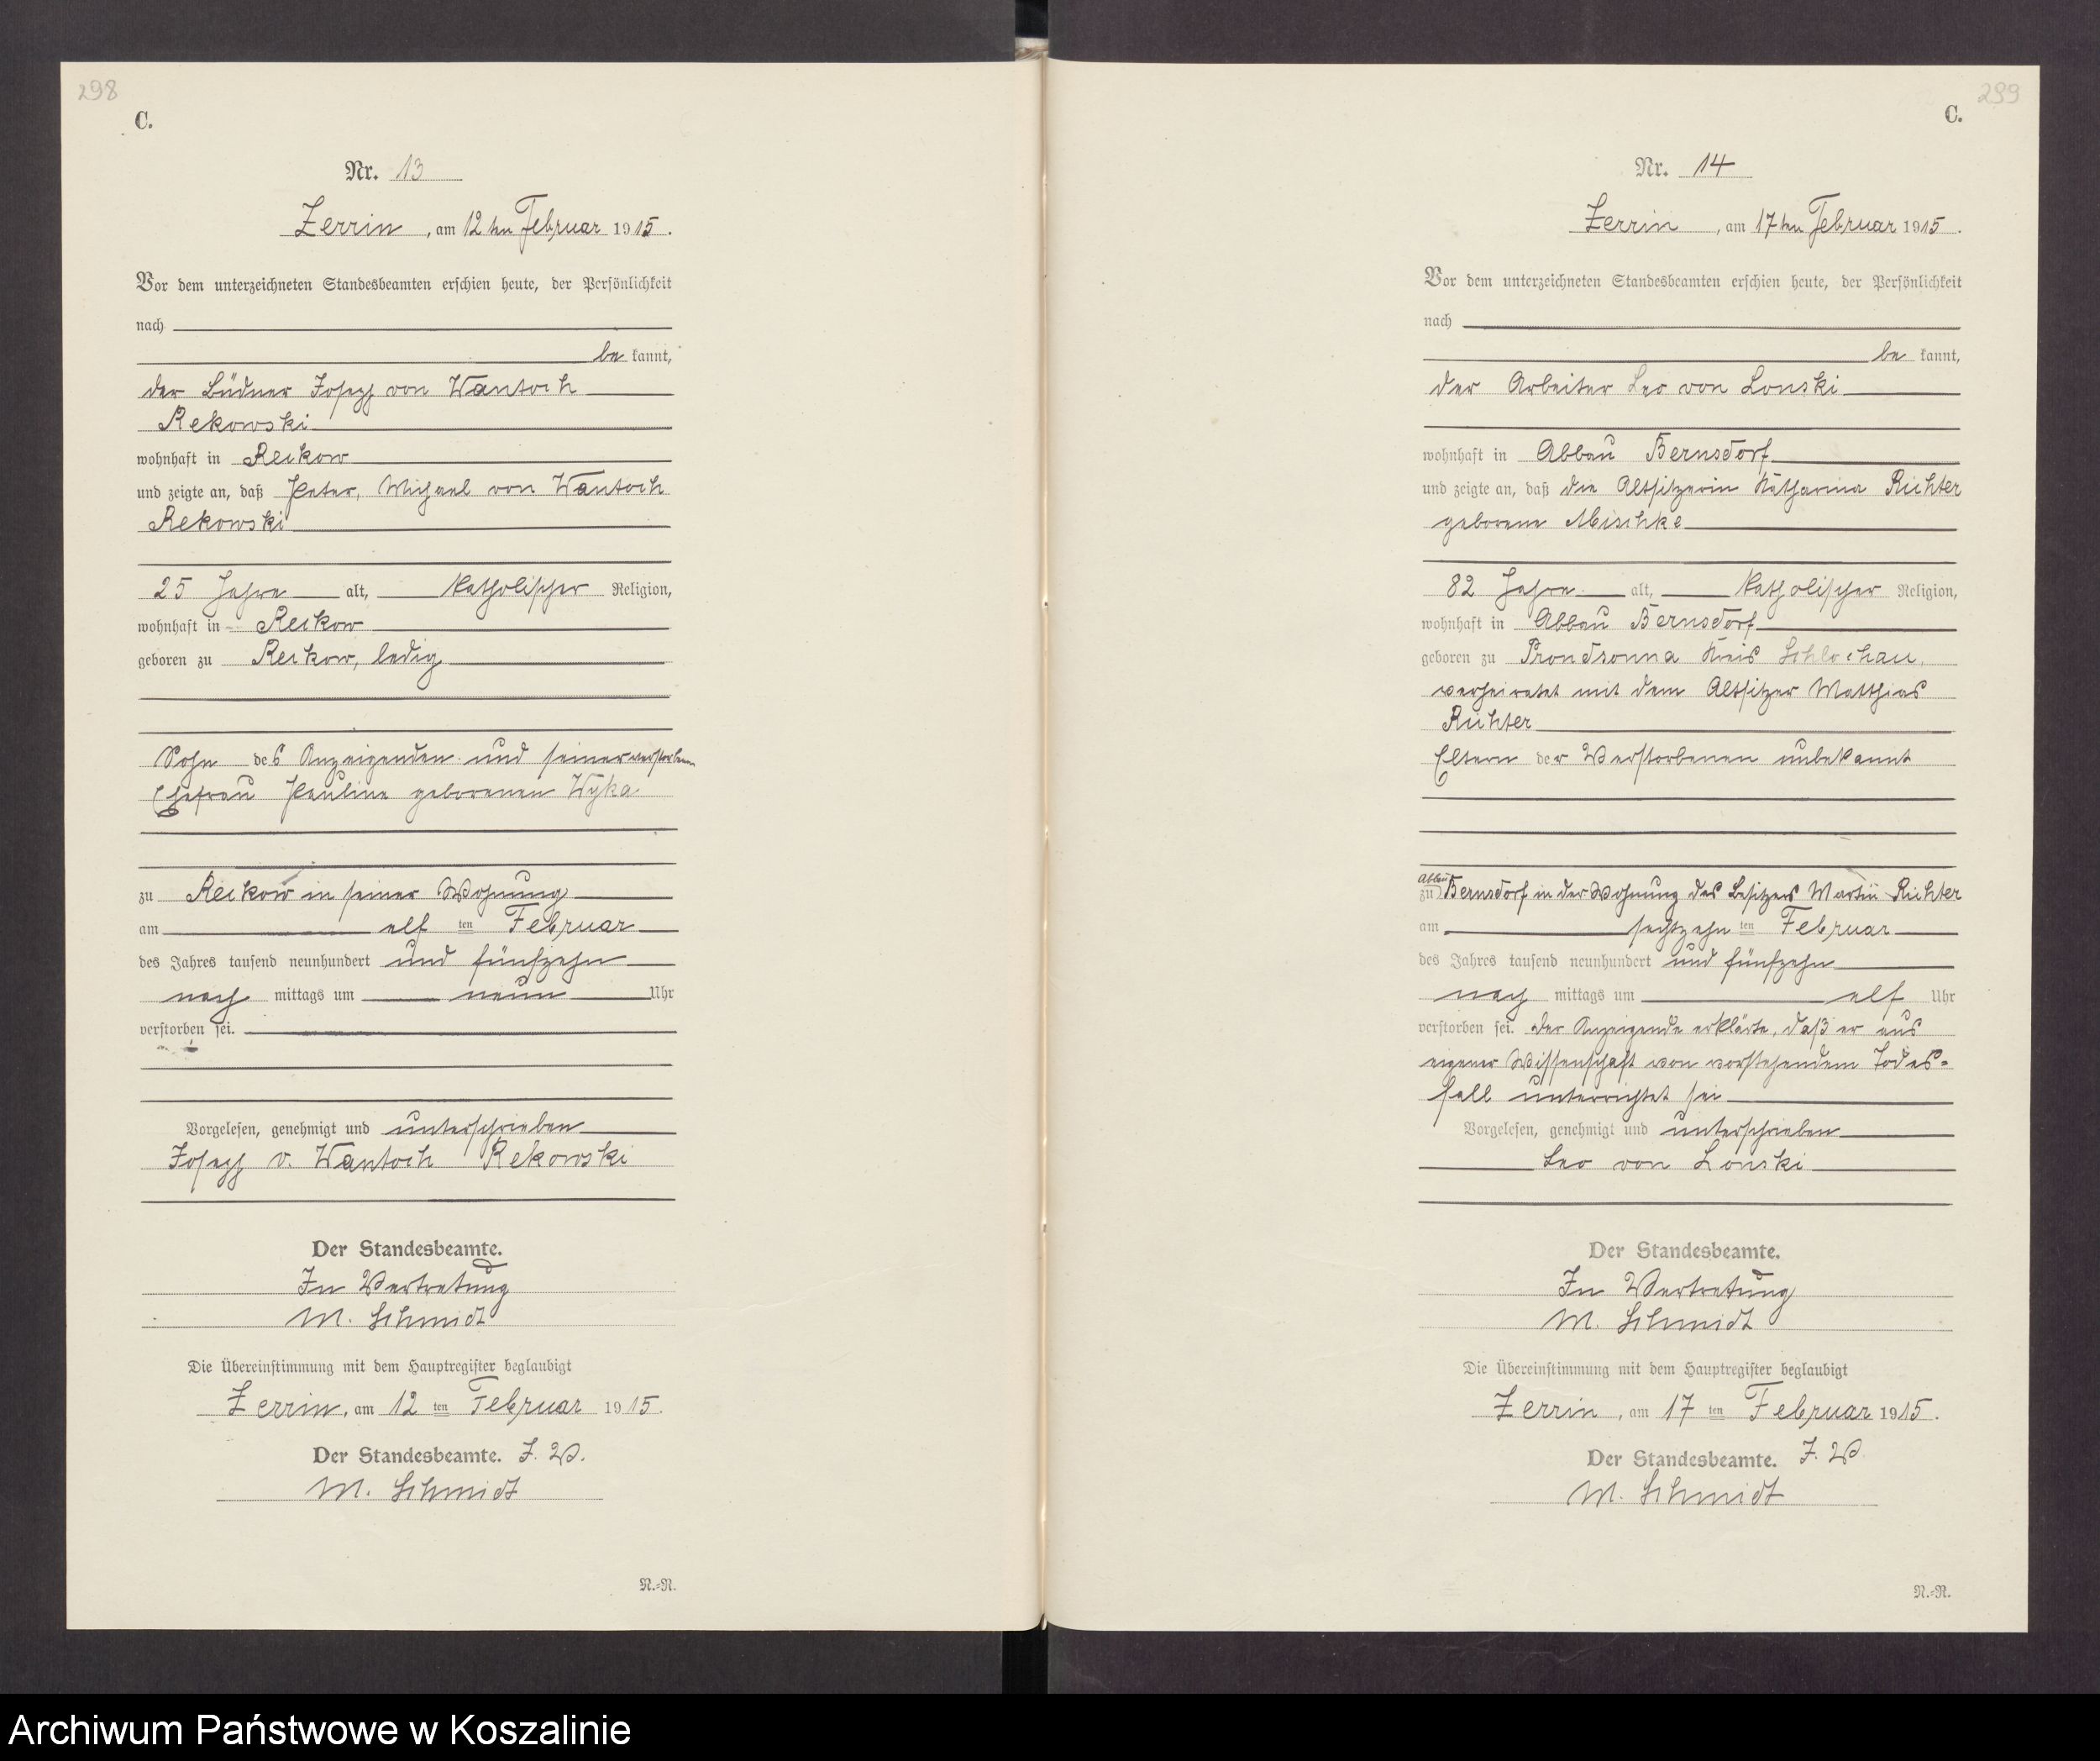 298
C.
Nr. 13
Zerrin, am 12ten Februar 1915.
Vor dem unterzeichneten Standesbeamten erschien heute, der Persönlichkeit
nach
be kannt,
der Büdner Joseph von Wantoch
Rekowski
wohnhaft in Reckow
und zeigte an, daß Peter, Michael von Wantoch
Rekowski
25 Jahre alt, katholischer Religion,
wohnhaft in Reckow
geboren zu Reckow, ledig
Sohn des Anzeigenden und seiner verstorbenen
Ehefrau Pauline geborenen Wyka
zu Reckow in seiner Wohnung
am elf ten Februar
des Jahres tausend neunhundert und fünfzehn
nach mittags um neun Uhr
verstorben sei.
Vorgelesen, genehmigt und unterschrieben
Joseph v. Wantoch Rekowski
Der Standesbeamte.
In Vertretung
M. Schmidt
Die Übereinstimmung mit dem Hauptregister beglaubigt
Zerrin, am 12 ten Februar 1915.
Der Standesbeamte. J. V.
M. Schmidt
N.-N.
299
C.
Nr. 14
Zerrin, am 17ten Februar 1915.
Vor dem unterzeichneten Standesbeamten erschien heute, der Persönlichkeit
nach
be kannt,
der Arbeiter Leo von Lonski
wohnhaft in Abbau Bernsdorf
und zeigte an, daß die Altsitzerin Katharina Richter
geborene Mischke
82 Jahre alt, katholischer Religion,
wohnhaft in Abbau Bernsdorf
geboren zu Prondzonna Kreis Schlochau,
verheiratet mit dem Altsitzer Matthias
Richter
Eltern der Verstorbenen unbekannt
Abbau
zu Bernsdorf in der Wohnung des Besitzers Martin Richter
am sechzehn ten Februar
des Jahres tausend neunhundert und fünfzehn
nach mittags um elf Uhr
verstorben sei. Der Anzeigende erklärte, daß er aus
eigener Wissenschaft von vorstehendem Todes-
fall unterrichtet sei
Vorgelesen, genehmigt und unterschrieben
Leo von Lonski
Der Standesbeamte.
In Vertretung
M. Schmidt
Die Übereinstimmung mit dem Hauptregister beglaubigt
Zerrin, am 17 ten Februar 1915.
Der Standesbeamte. J. V.
M. Schmidt
N.-N.
Archiwum Państwowe w Koszalinie